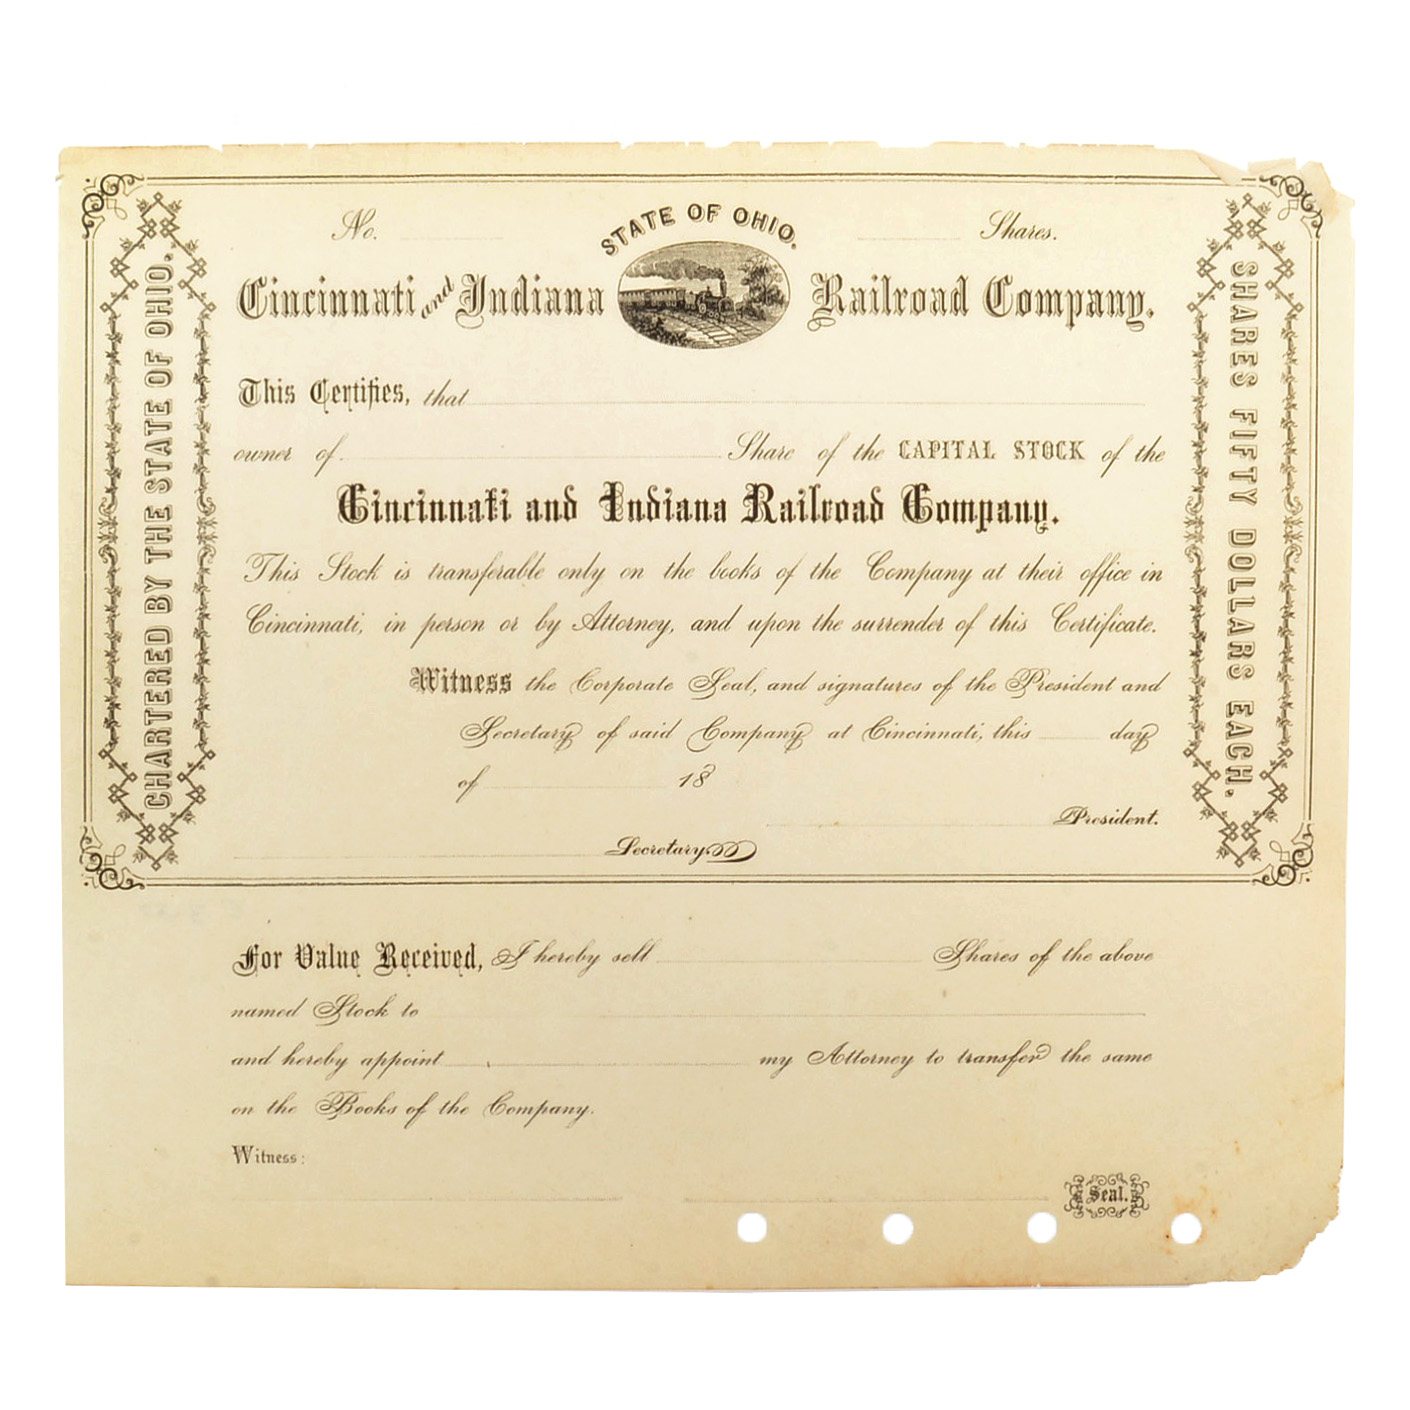 No. Shares.
STATE OF OHIO.
Cincinnati and Indiana Railroad Company.
CHARTERED BY THE STATE OF OHIO.
SHARES FIFTY DOLLARS EACH.
This Certifies, that
owner of Share of the CAPITAL STOCK of the
Cincinnati and Indiana Railroad Company.
This Stock is transferable only on the books of the Company at their office in
Cincinnati, in person or by Attorney, and upon the surrender of this Certificate.
Witness the Corporate Seal, and signatures of the President and
Secretary of said Company at Cincinnati, this day
of 18
President.
Secretary
For Value Received, I hereby sell Shares of the above
named Stock to
and hereby appoint my Attorney to transfer the same
on the Books of the Company.
Witness:
Seal.